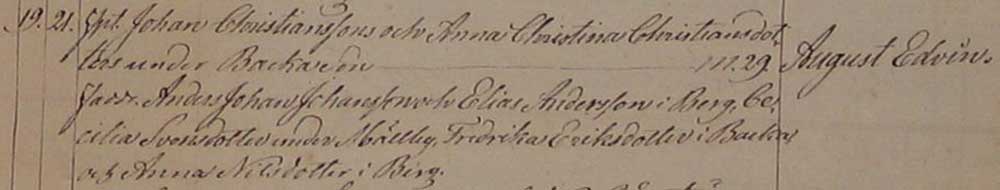 19. 21. Hpt. Johan Christianssons och Anna Christina Christiansdot-
ters under Backa Son m. 29. August Edvin.
Fadd. Anders Johan Johansson och Elias Andersson i Berg, Ce-
cilia Svensdotter under Mälby, Fredrika Eriksdotter i Backa,
och Anna Nilsdotter i Berg.